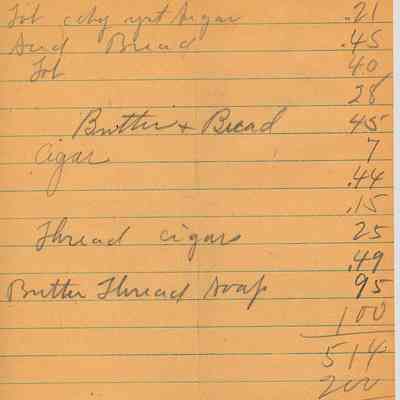 Tob city ypt sugar .21
And Bread .45
Tob 40
28
Butter + Bread 45
Cigar 7
.44
.15
Thread cigars 25
.49
Butter Thread Soap 95
100
514
200